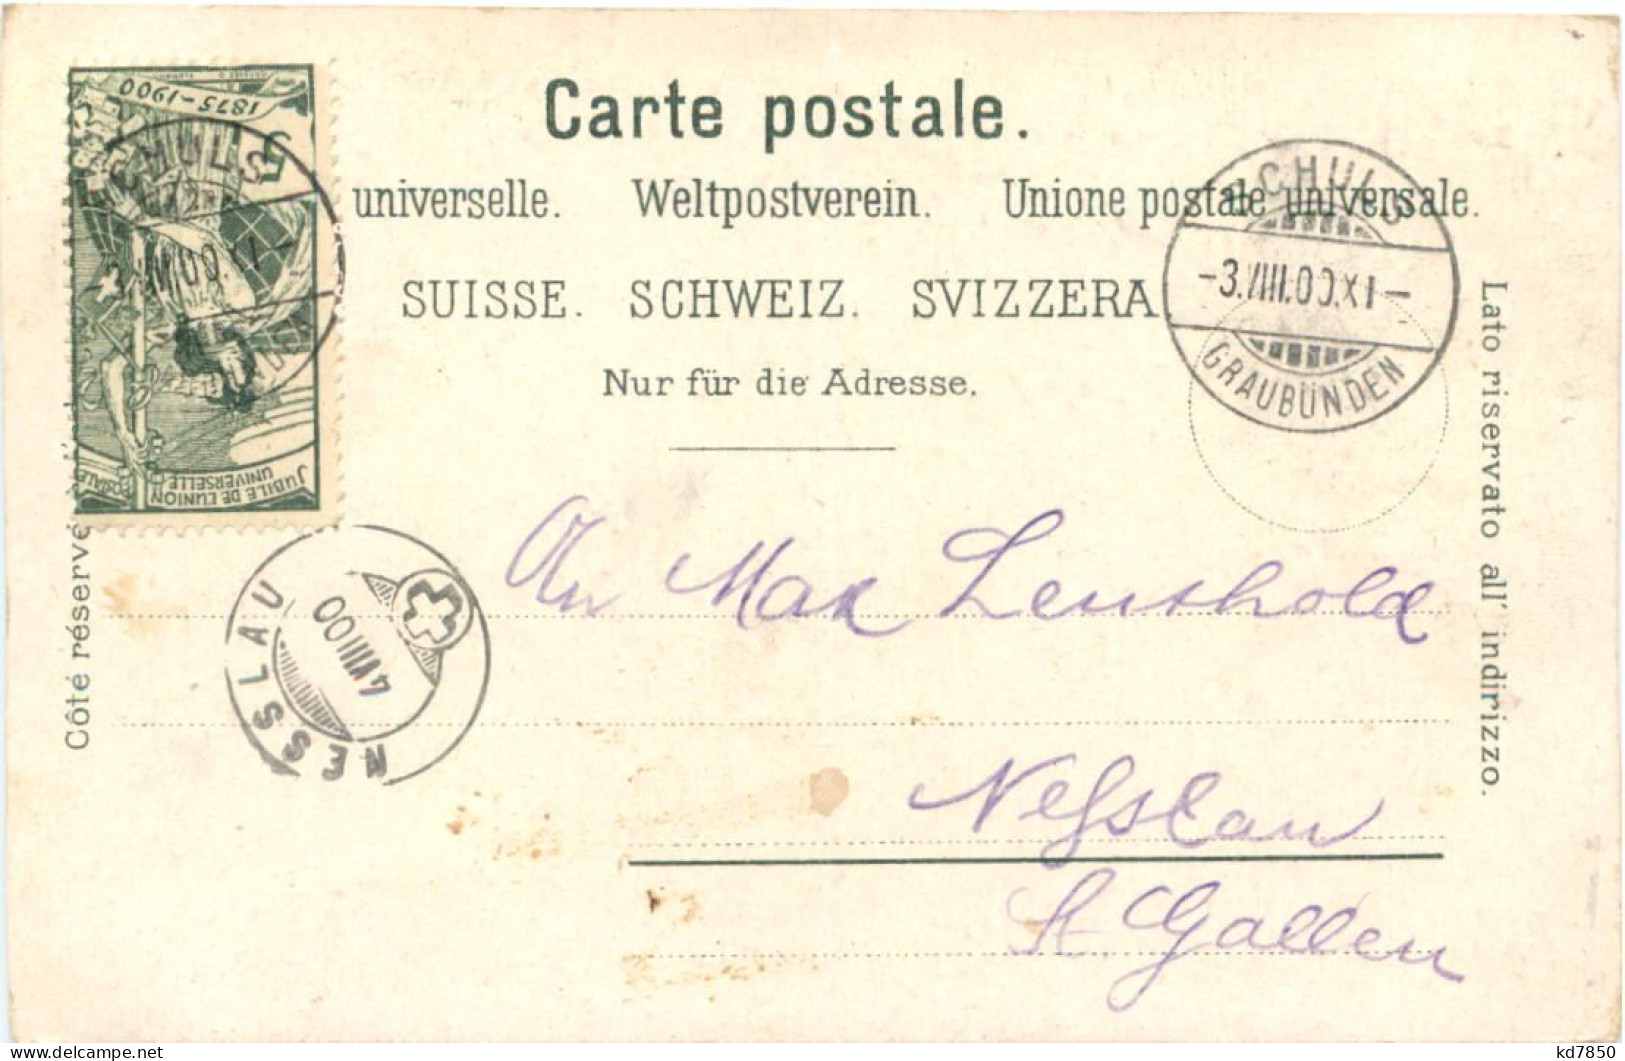 Carte postale.
universelle. Weltpostverein. Unione postale universale.
SUISSE. SCHWEIZ. SVIZZERA.
Nur für die Adresse.
Côté réservé
Lato riservato all' indirizzo.
1875-1900
5
JUBILÉ DE L'UNION
UNIVERSELLE
POSTALE
SCHULS
-3.VIII.00.XI-
SCHULS
-3.VIII.00.XI-
GRAUBÜNDEN
NESSLAU
4 VIII 00
An Max Leuthold
Neßlau
St. Gallen
delcampe.net
kd7850